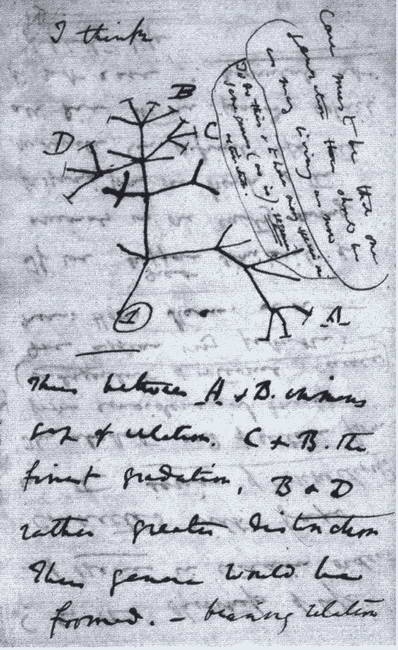 I think
Case must be that one
generation then should be
as many living as now
To do this & to have many species in
same genus (as is) requires
extinction.
B
D
C
1
A
Thus between A & B. immens
gap of relation. C & B. the
finest gradation, B & D
rather greater distinction
Thus genera would be
formed. — bearing relation